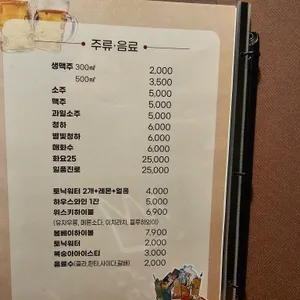 주류·음료
생맥주 300㎖ 2,000
500㎖ 3,500
소주 5,000
맥주 5,000
과일소주 5,000
청하 6,000
별빛청하 6,000
매화수 6,000
화요25 25,000
일품진로 25,000
토닉워터 2개+레몬+얼음 4,000
하우스와인 1잔 5,000
위스키하이볼 6,900
(유자우롱, 메론소다, 이치라치, 블루하와이)
봄베이하이볼 7,900
토닉워터 2,000
복숭아아이스티 3,000
음료수(콜라,환타,사이다,갈배) 2,000